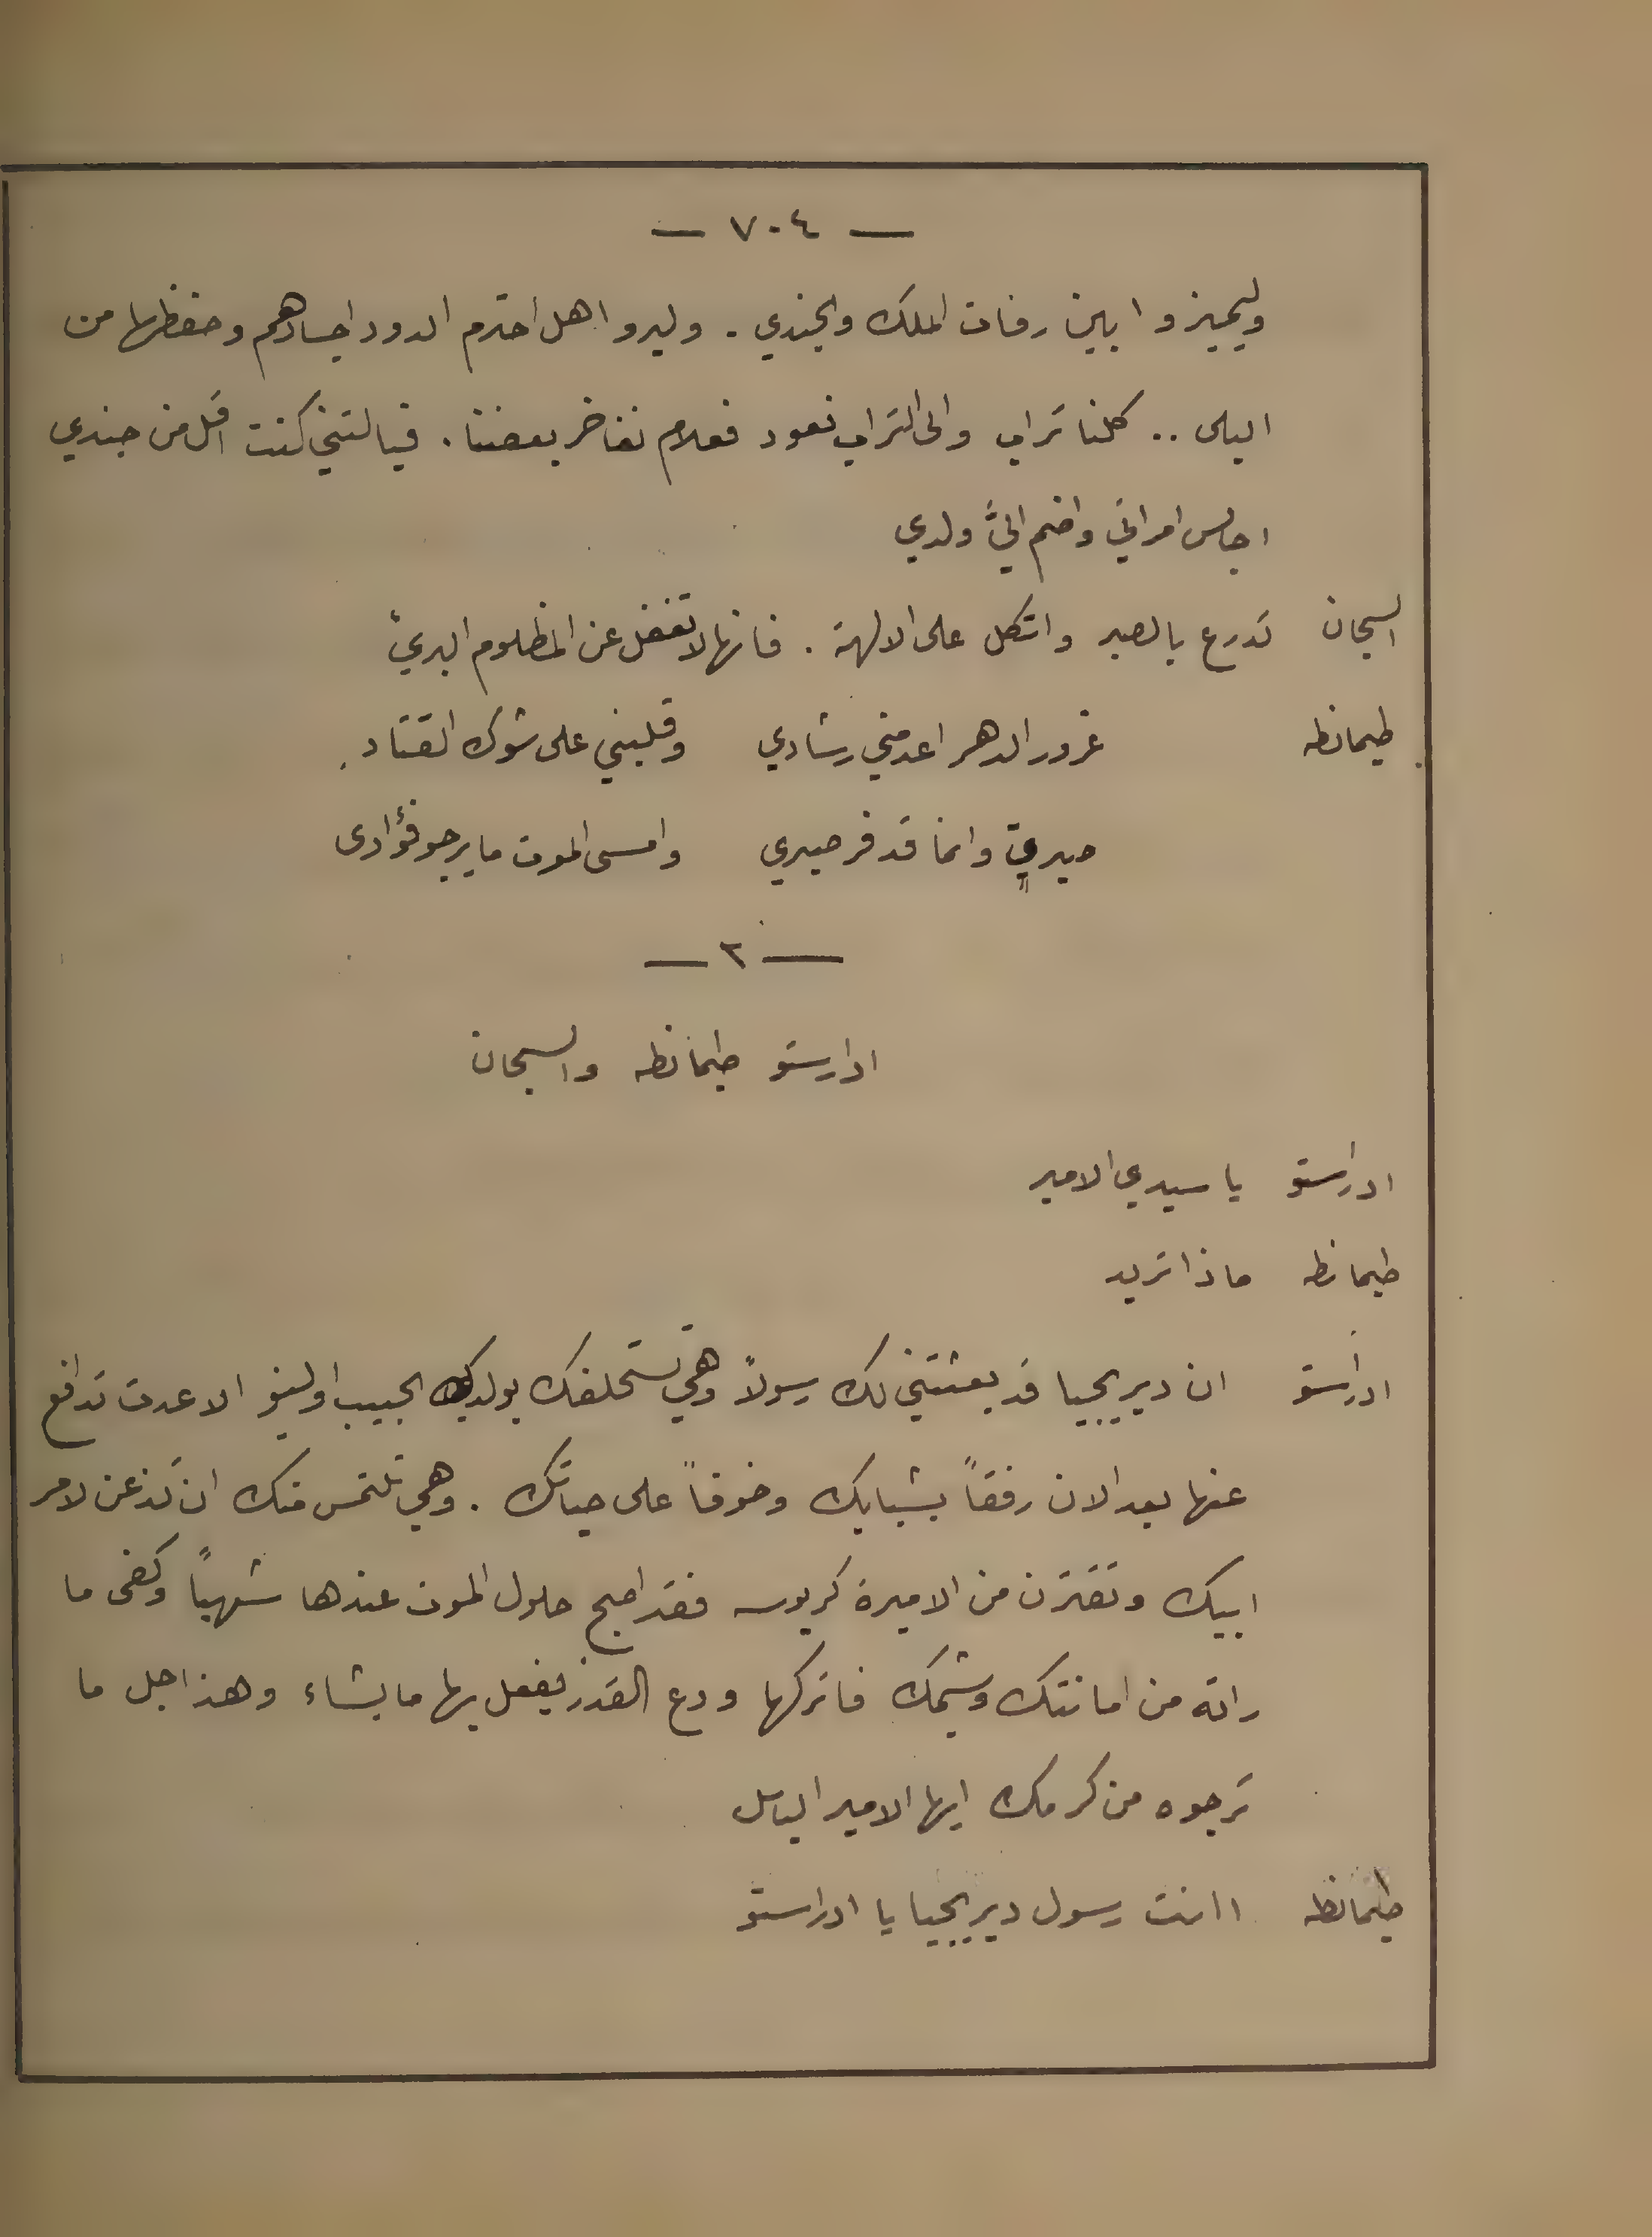 — ٧٠٤ —
وليميزوا بين رفات الملك والجندي . وليروا هل احترم الدود اجسادهم وحفظها من
البلى .. كلنا تراب والى التراب نعود فعلام نفاخر بعضنا . فيا لتني كنت اقل من جندي
اجالس امراتي واضم اليَّ ولدي
السجان تدرع بالصبر واتكل على الالهة . فانها لا تغفل عن المظلوم البريء
طيمانطه غرور الدهر اعدمني رشادي وقلبني على شوك القتاد
صبري وانما قد فر صبري وامسى الموت ما يرجو فؤادى
— ٢ —
ادراستو طيمانطه والسجان
ادراستو يا سيدي الامير
طيمانطه ماذا تريد
ادراستو ان ديريجيا قد بعثتني لك رسولاً وهي تستحلفك بولدك الحبيب اولينو الا عدت تدافع
عنها بعد الان رفقاً بشبابك وخوفاً على حياتك . وهي تلتمس منك ان تذعن لامر
ابيك وتقترن من الاميرة كريوسه فقد اصبح حلول الموت عندها شهياً وكفى ما
راته من امانتك وشيمك فاتركها ودع القدر يفعل بها ما يشاء وهذا جل ما
ترجوه من كرمك ايها الامير الباسل
طيمانطه اانت رسول ديريجيا يا ادراستو